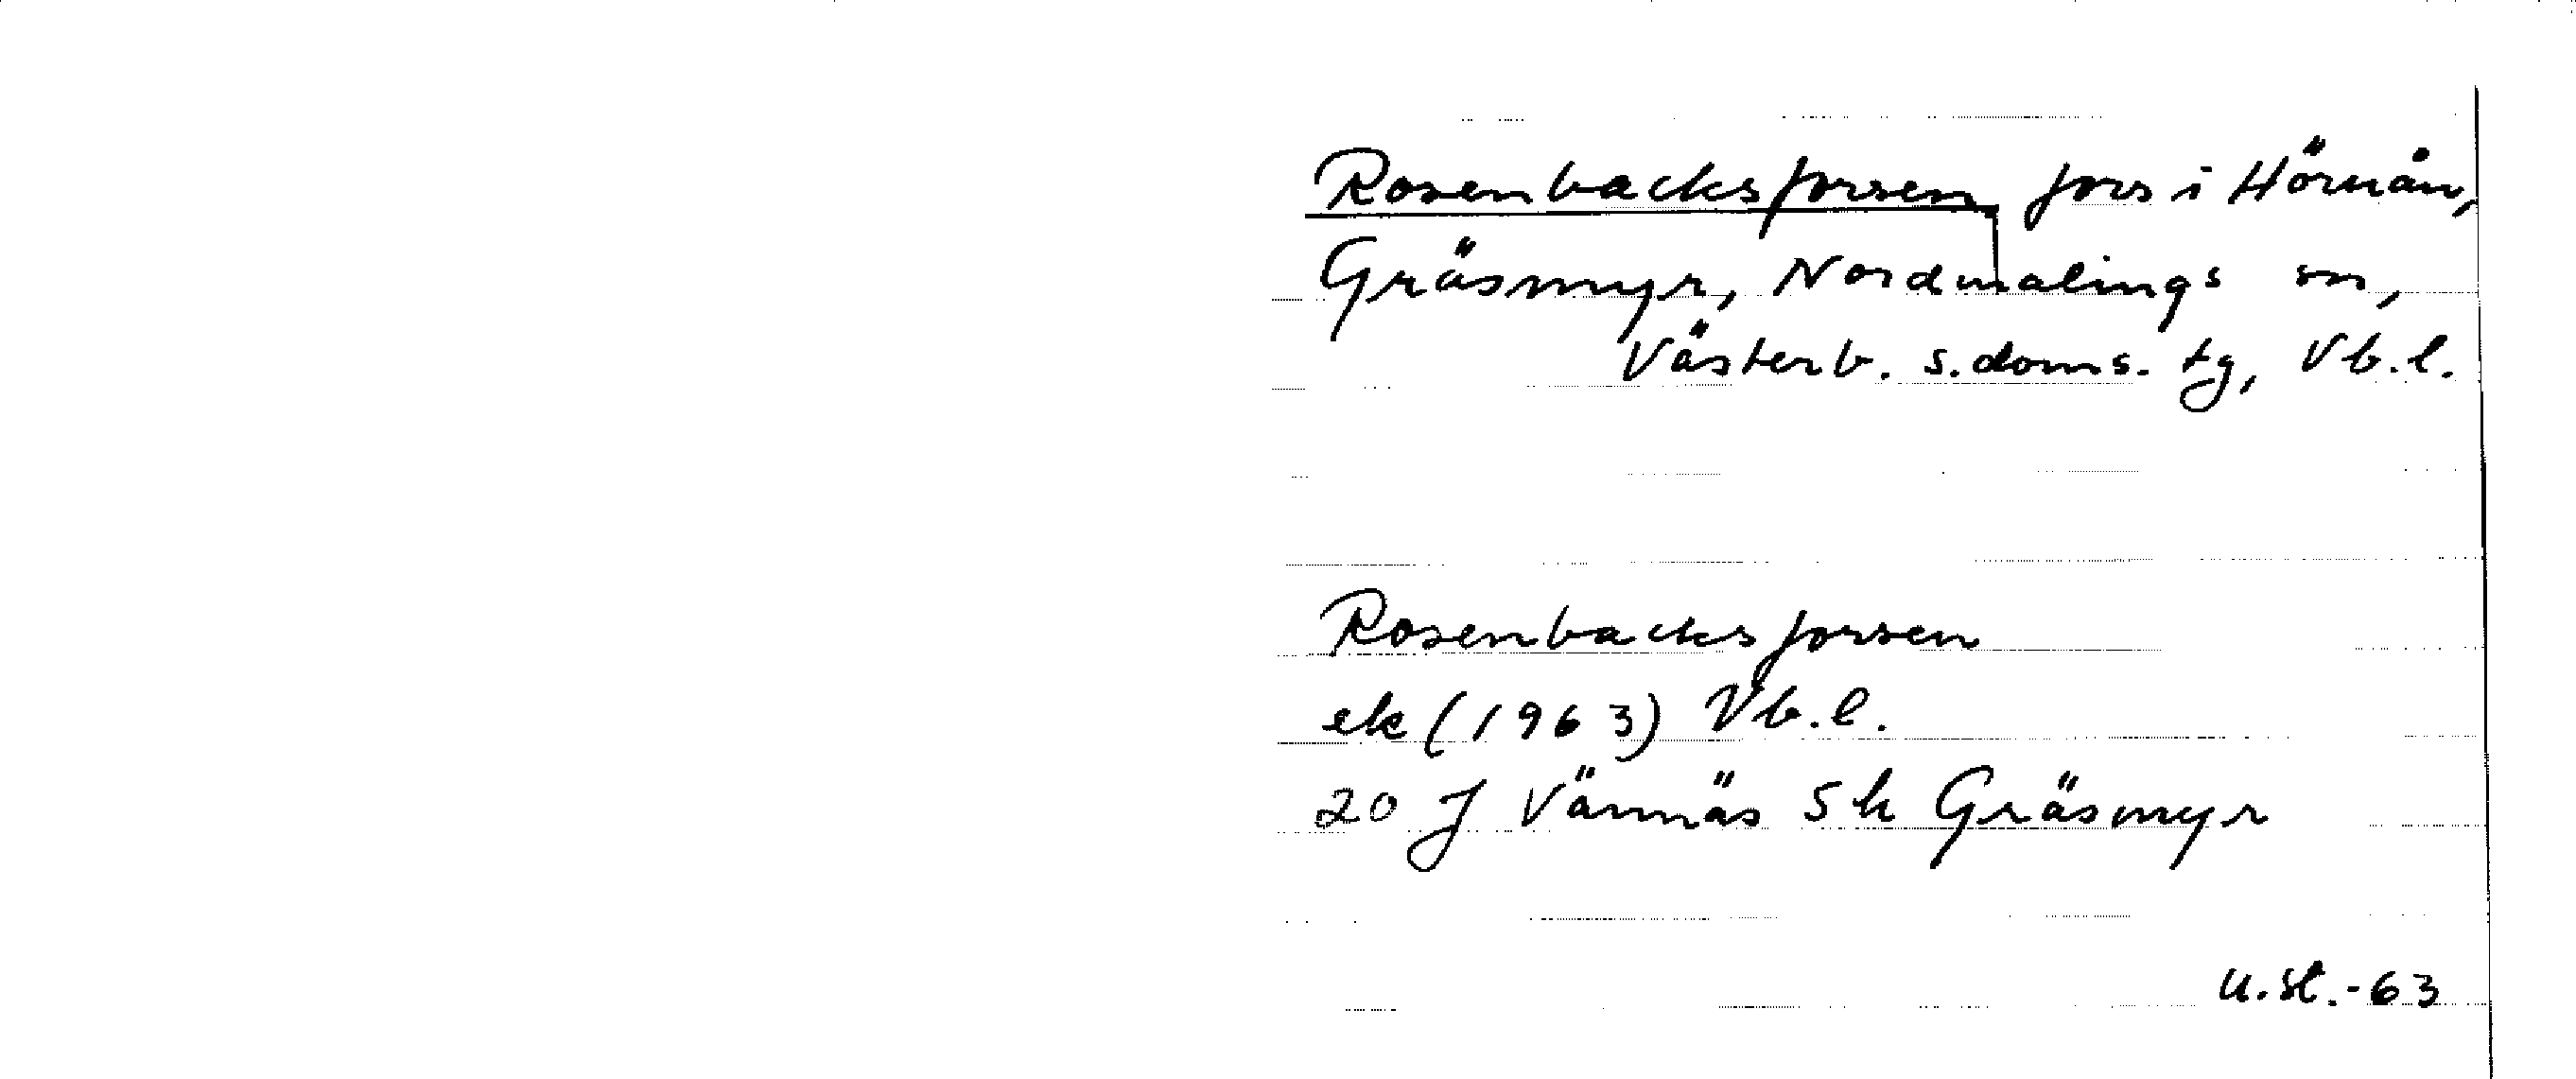 Rosenbacksforsen, fors i Hörnån,
Gräsmyr, Nordmalings sn,
Västerb. s. doms. tg, Vb.l.
Rosenbacksforsen
ek (1963) Vb.l.
20 J Vännäs 5h Gräsmyr
U.St.-63